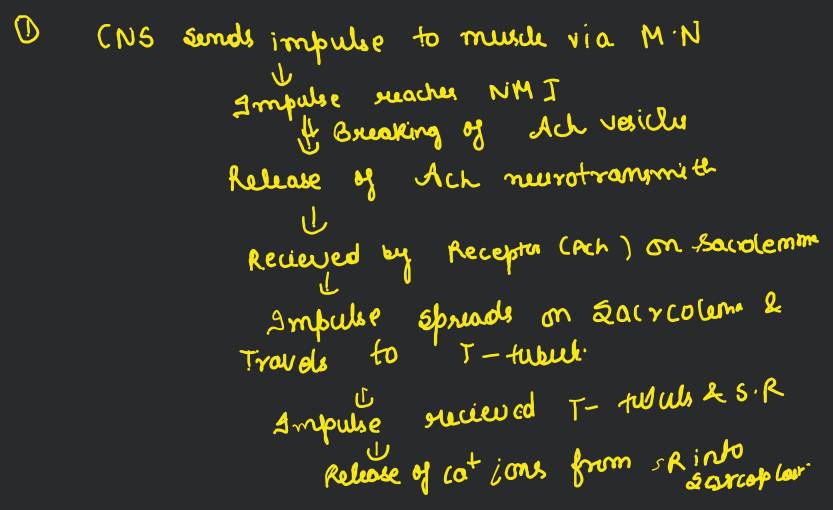 ① CNS sends impulse to muscle via M.N
↓
Impulse reaches NMJ
↓ Breaking of Ach vesicles
Release of Ach neurotransmitt
↓
Recieved by Receptor (Ach) on
↓
Impulse spreads on &
Travels to T-tubul.
↓
Impulse recieved T- & S.R
↓
Release of ca+ ions from SR into